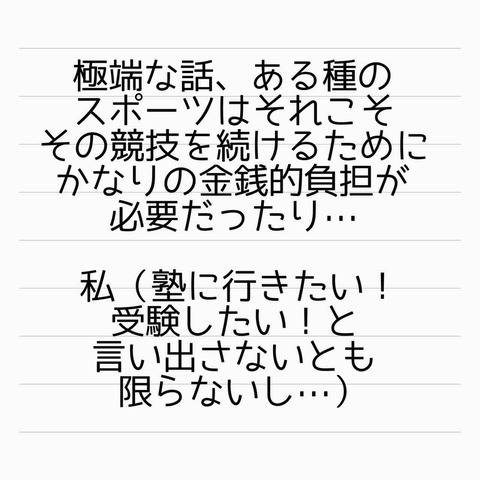 極端な話、ある種の
スポーツはそれこそ
その競技を続けるために
かなりの金銭的負担が
必要だったり…
私（塾に行きたい！
受験したい！と
言い出さないとも
限らないし…）